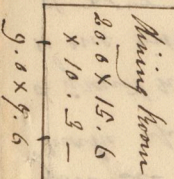 Dining Room
20.0 x 15.6
x 10.3 –
9.0 x 9.6